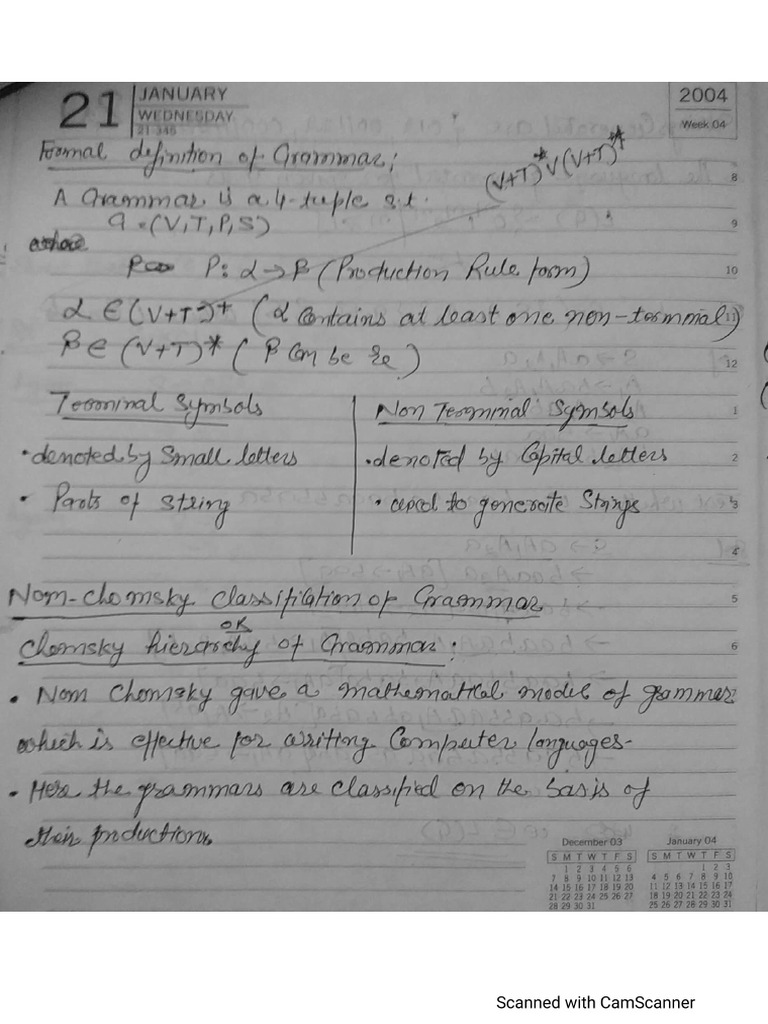 21
JANUARY
WEDNESDAY
21-345
2004
Week 04
Formal definition of Grammar:
(V+T)* V (V+T)*
A Grammar is a 4-tuple s.t.
G = (V,T,P,S)
where
P: α → β (Production Rule form)
α ∈ (V+T)+ (α contains at least one non-terminal)
β ∈ (V+T)* (β can be ε)
Terminal Symbols
• denoted by small letters
• Parts of string
Non Terminal Symbols
• denoted by Capital letters
• used to generate Strings
Nom-Chomsky classification of Grammar
OR
Chomsky hierarchy of Grammar:
• Nom Chomsky gave a mathematical model of grammer
which is effective for writing Computer languages-
• Here the grammars are classified on the basis of
their productions
8
9
10
11
12
1
2
3
4
5
6
December 03
S M T W T F S
1 2 3 4 5 6
7 8 9 10 11 12 13
14 15 16 17 18 19 20
21 22 23 24 25 26 27
28 29 30 31
January 04
S M T W T F S
1 2 3
4 5 6 7 8 9 10
11 12 13 14 15 16 17
18 19 20 21 22 23 24
25 26 27 28 29 30 31
Scanned with CamScanner